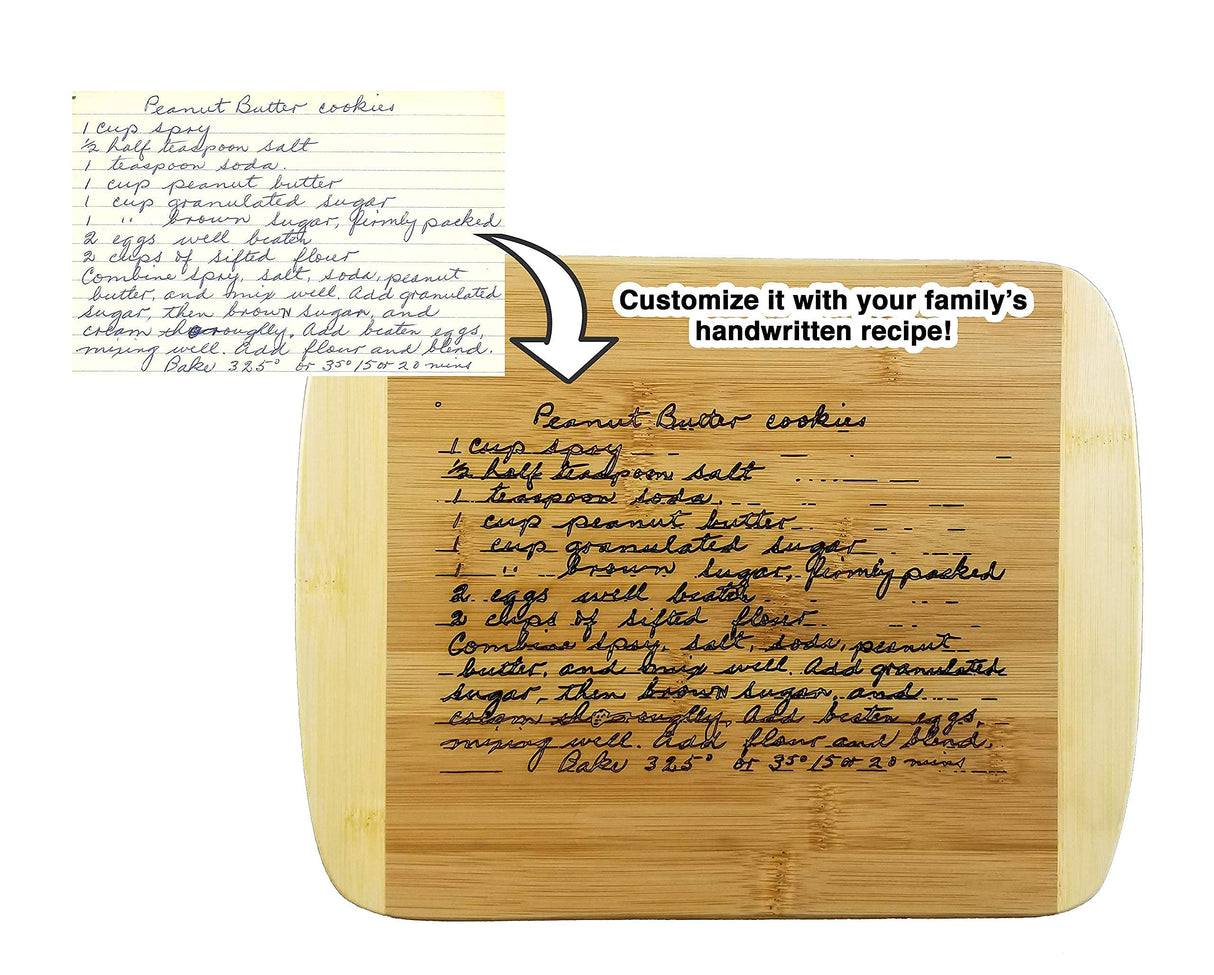 Peanut Butter cookies
1 cup spry
½ half teaspoon salt
1 teaspoon soda.
1 cup peanut butter
1 cup granulated sugar
1 " brown sugar, firmly packed
2 eggs well beaten
2 cups of sifted flour
Combine spry, salt, soda, peanut
butter, and mix well. Add granulated
sugar, then brown sugar, and
cream thoroughly, Add beaten eggs,
mixing well. Add flour and blend.
Bake 325° or 35° 15 or 20 mins
Customize it with your family's
handwritten recipe!
Peanut Butter cookies
1 cup spry
½ half teaspoon salt
1 teaspoon soda.
1 cup peanut butter
1 cup granulated sugar
1 " brown sugar, firmly packed
2 eggs well beaten
2 cups of sifted flour
Combine spry, salt, soda, peanut
butter, and mix well. Add granulated
sugar, then brown sugar, and
cream thoroughly, Add beaten eggs,
mixing well. Add flour and blend.
Bake 325° or 35° 15 or 20 mins